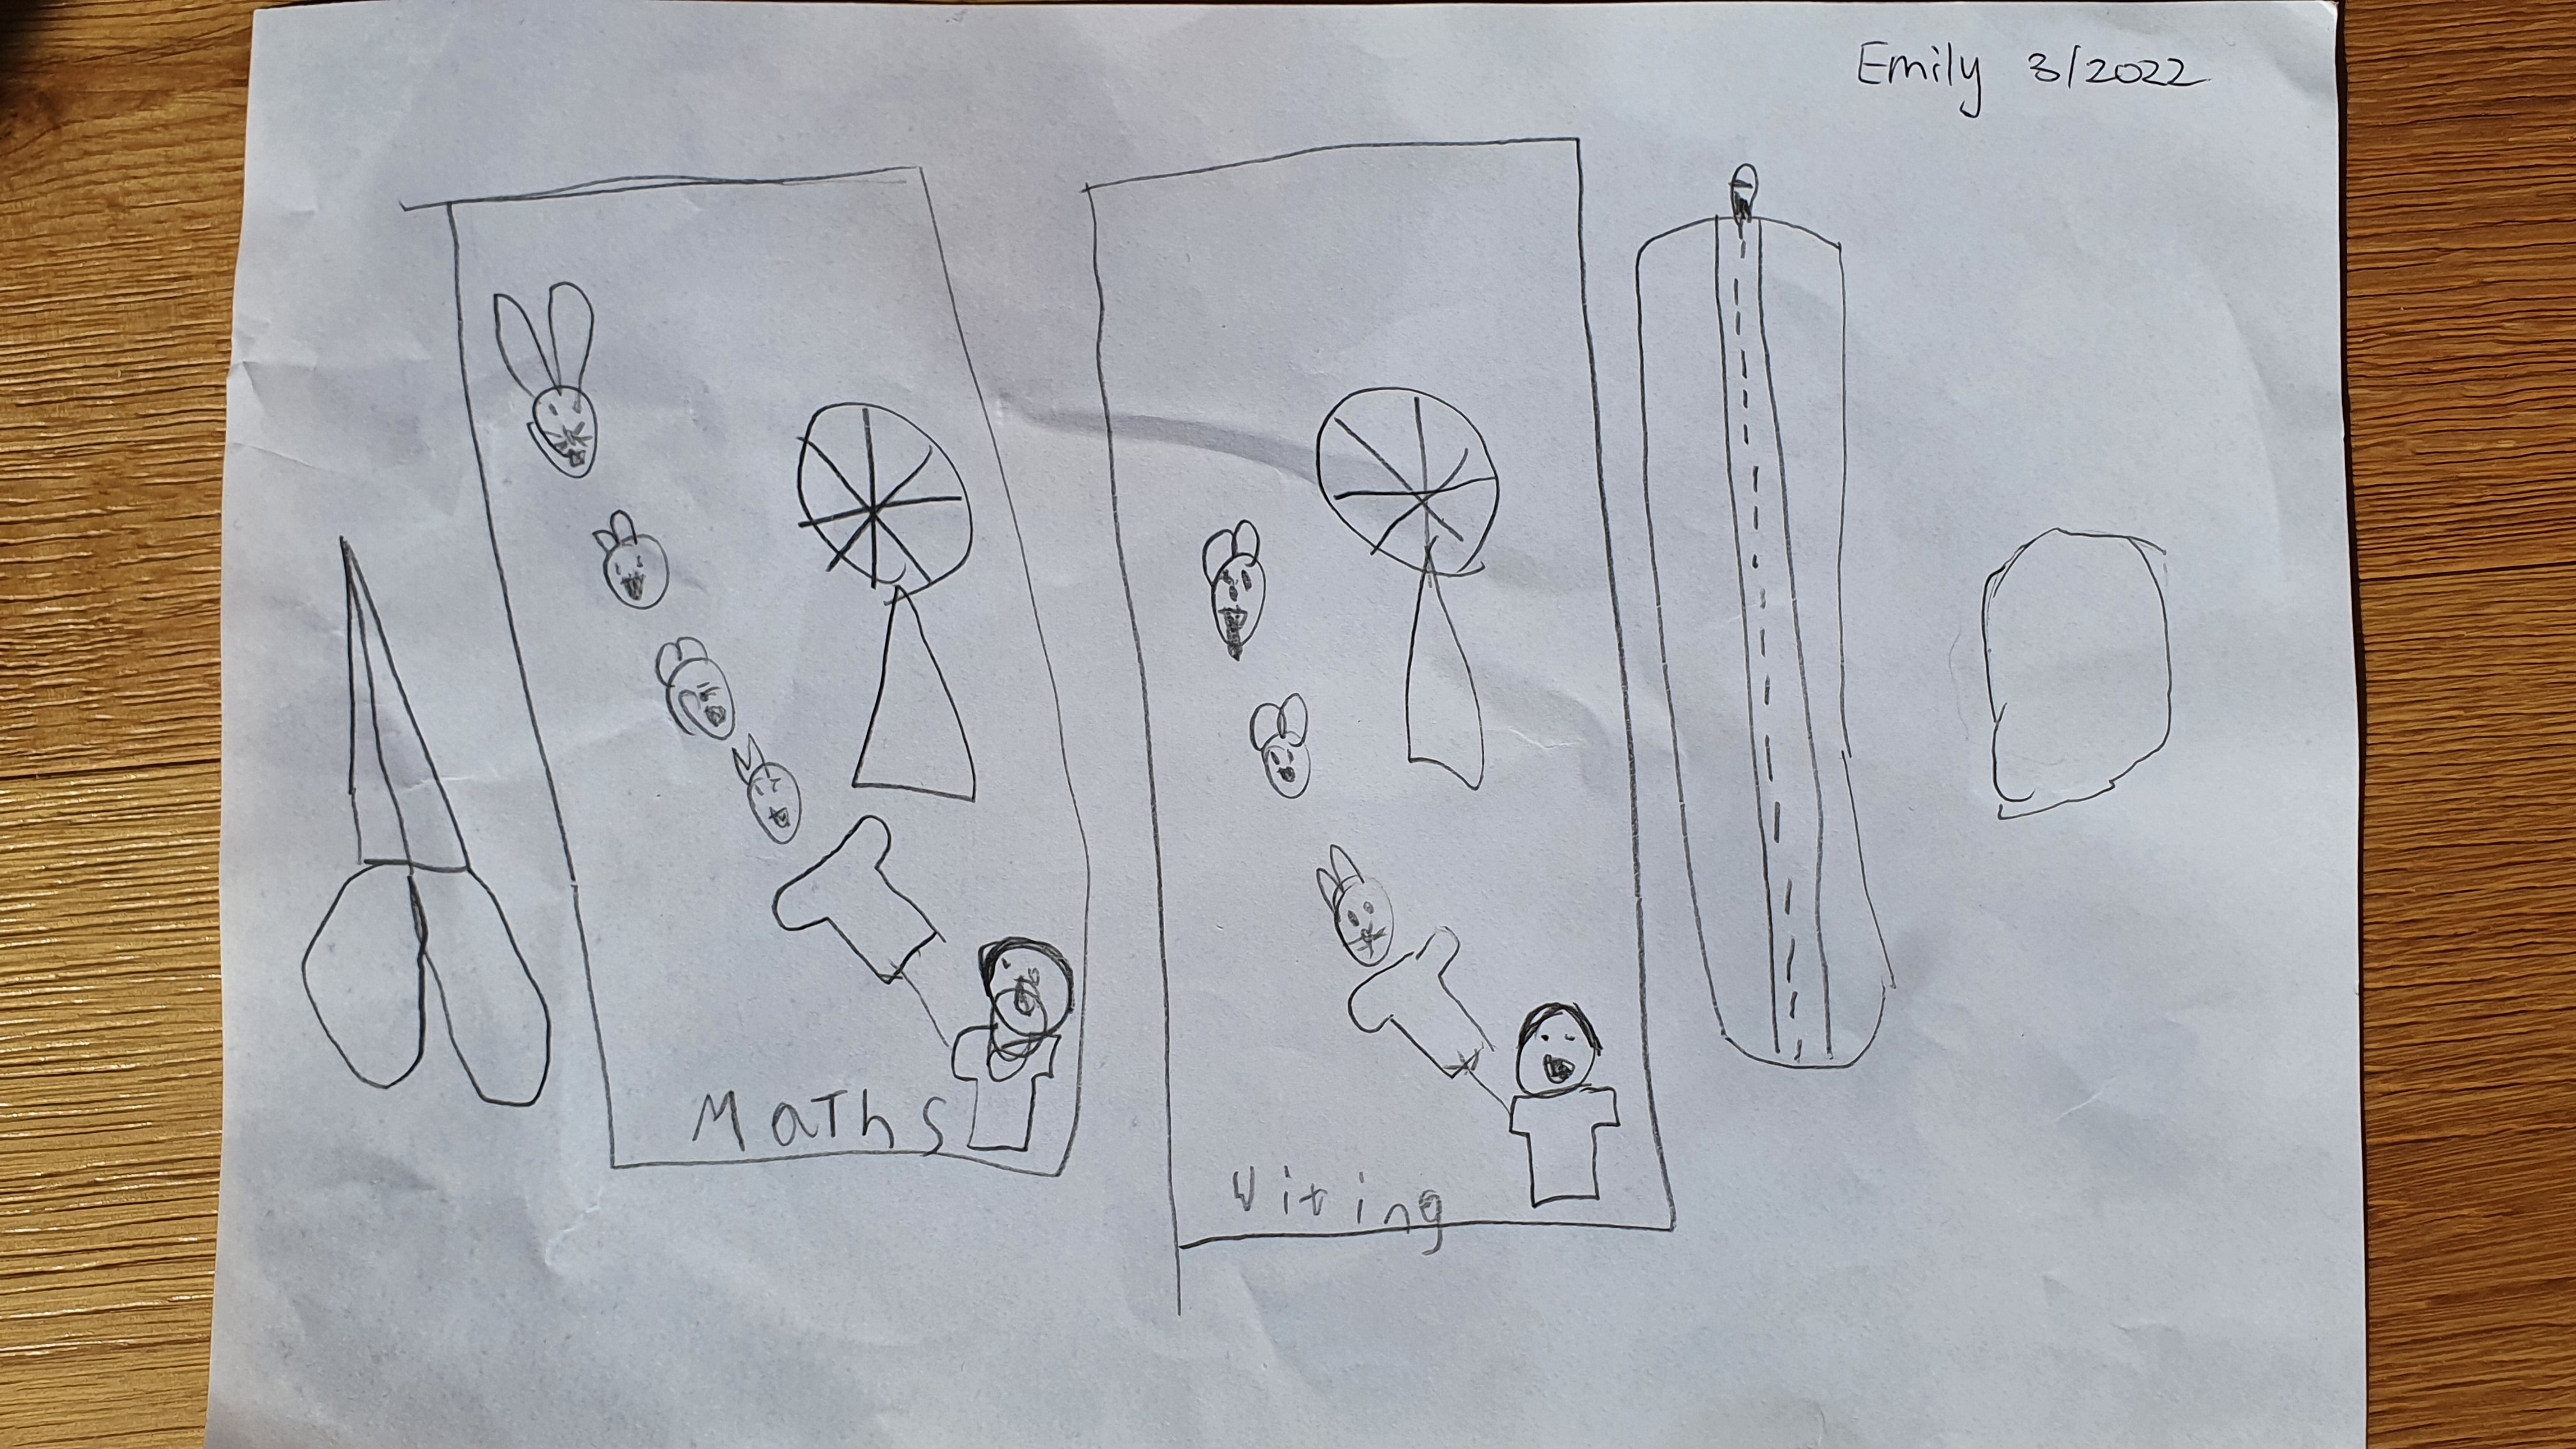 Emily 3/2022
Maths
Witing